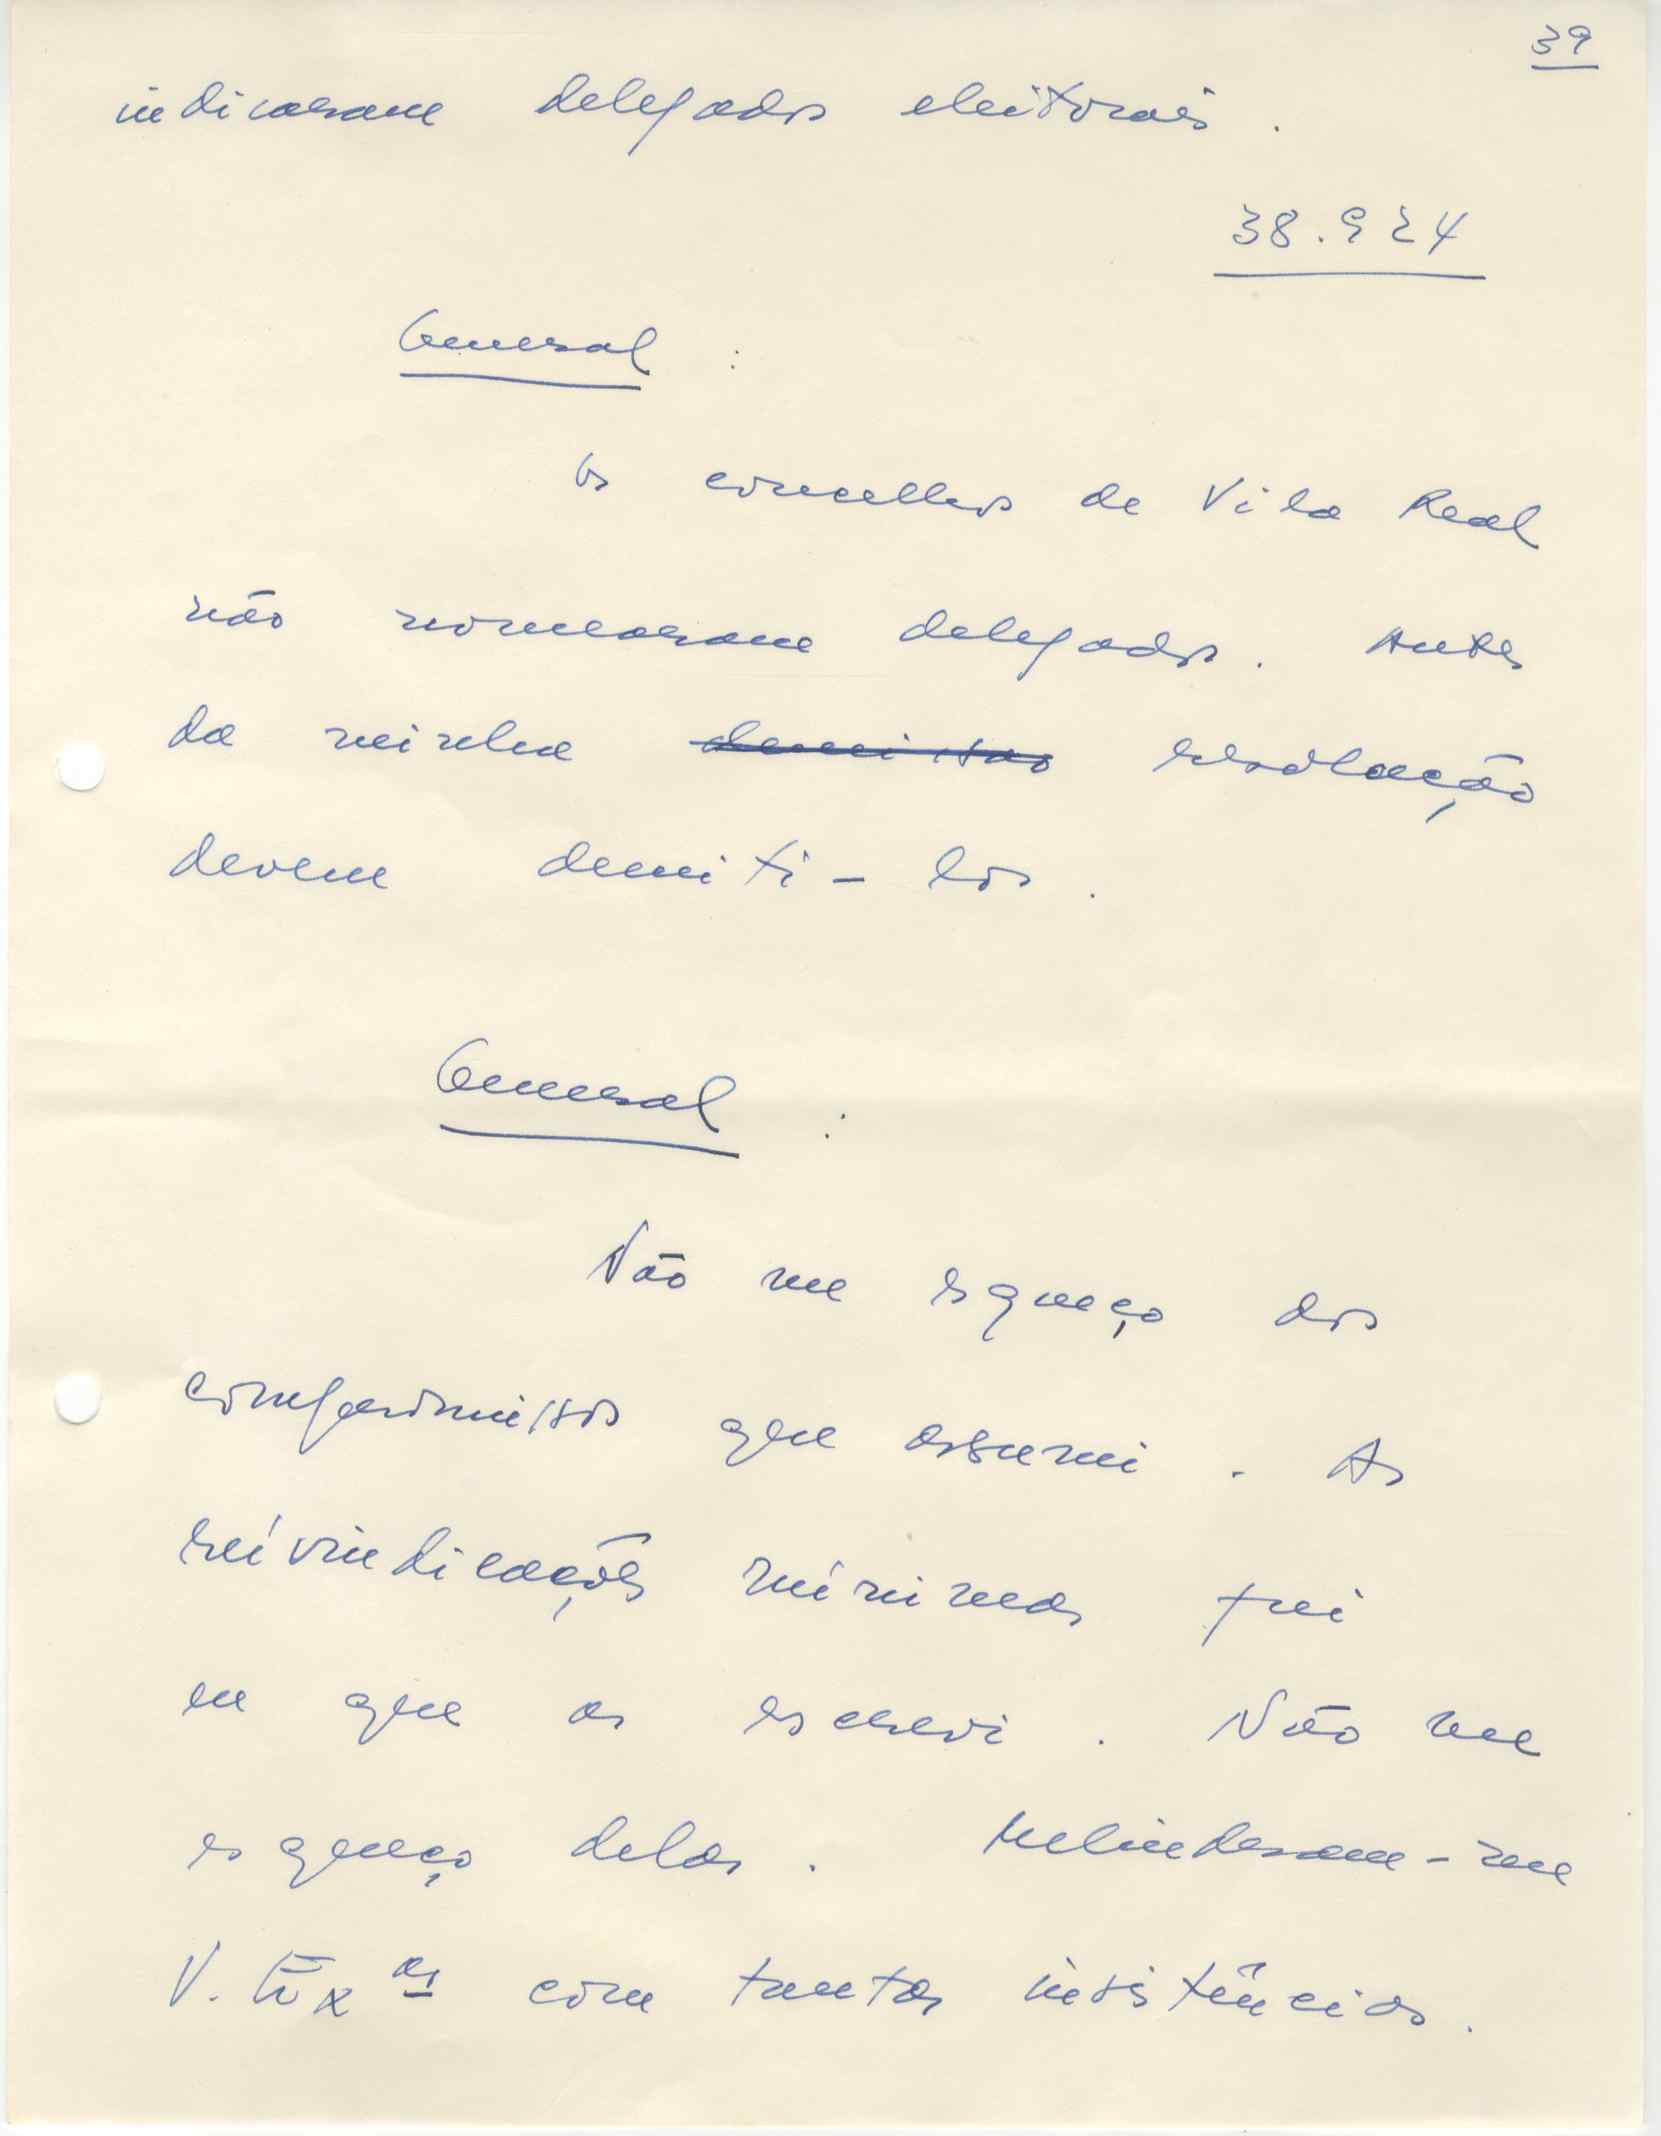 39
indicaram delegados eleitorais.
38.924
General:
Os concelhos de Vila Real
não nomearam delegados. Antes
da minha demissão resolução
devem demiti-los.
General:
Não me esqueço dos
compromissos que assumi. As
reivindicações mínimas fui
eu que as escrevi. Não me
esqueço delas. Melindram-me
V. Exas com tantas insistências.